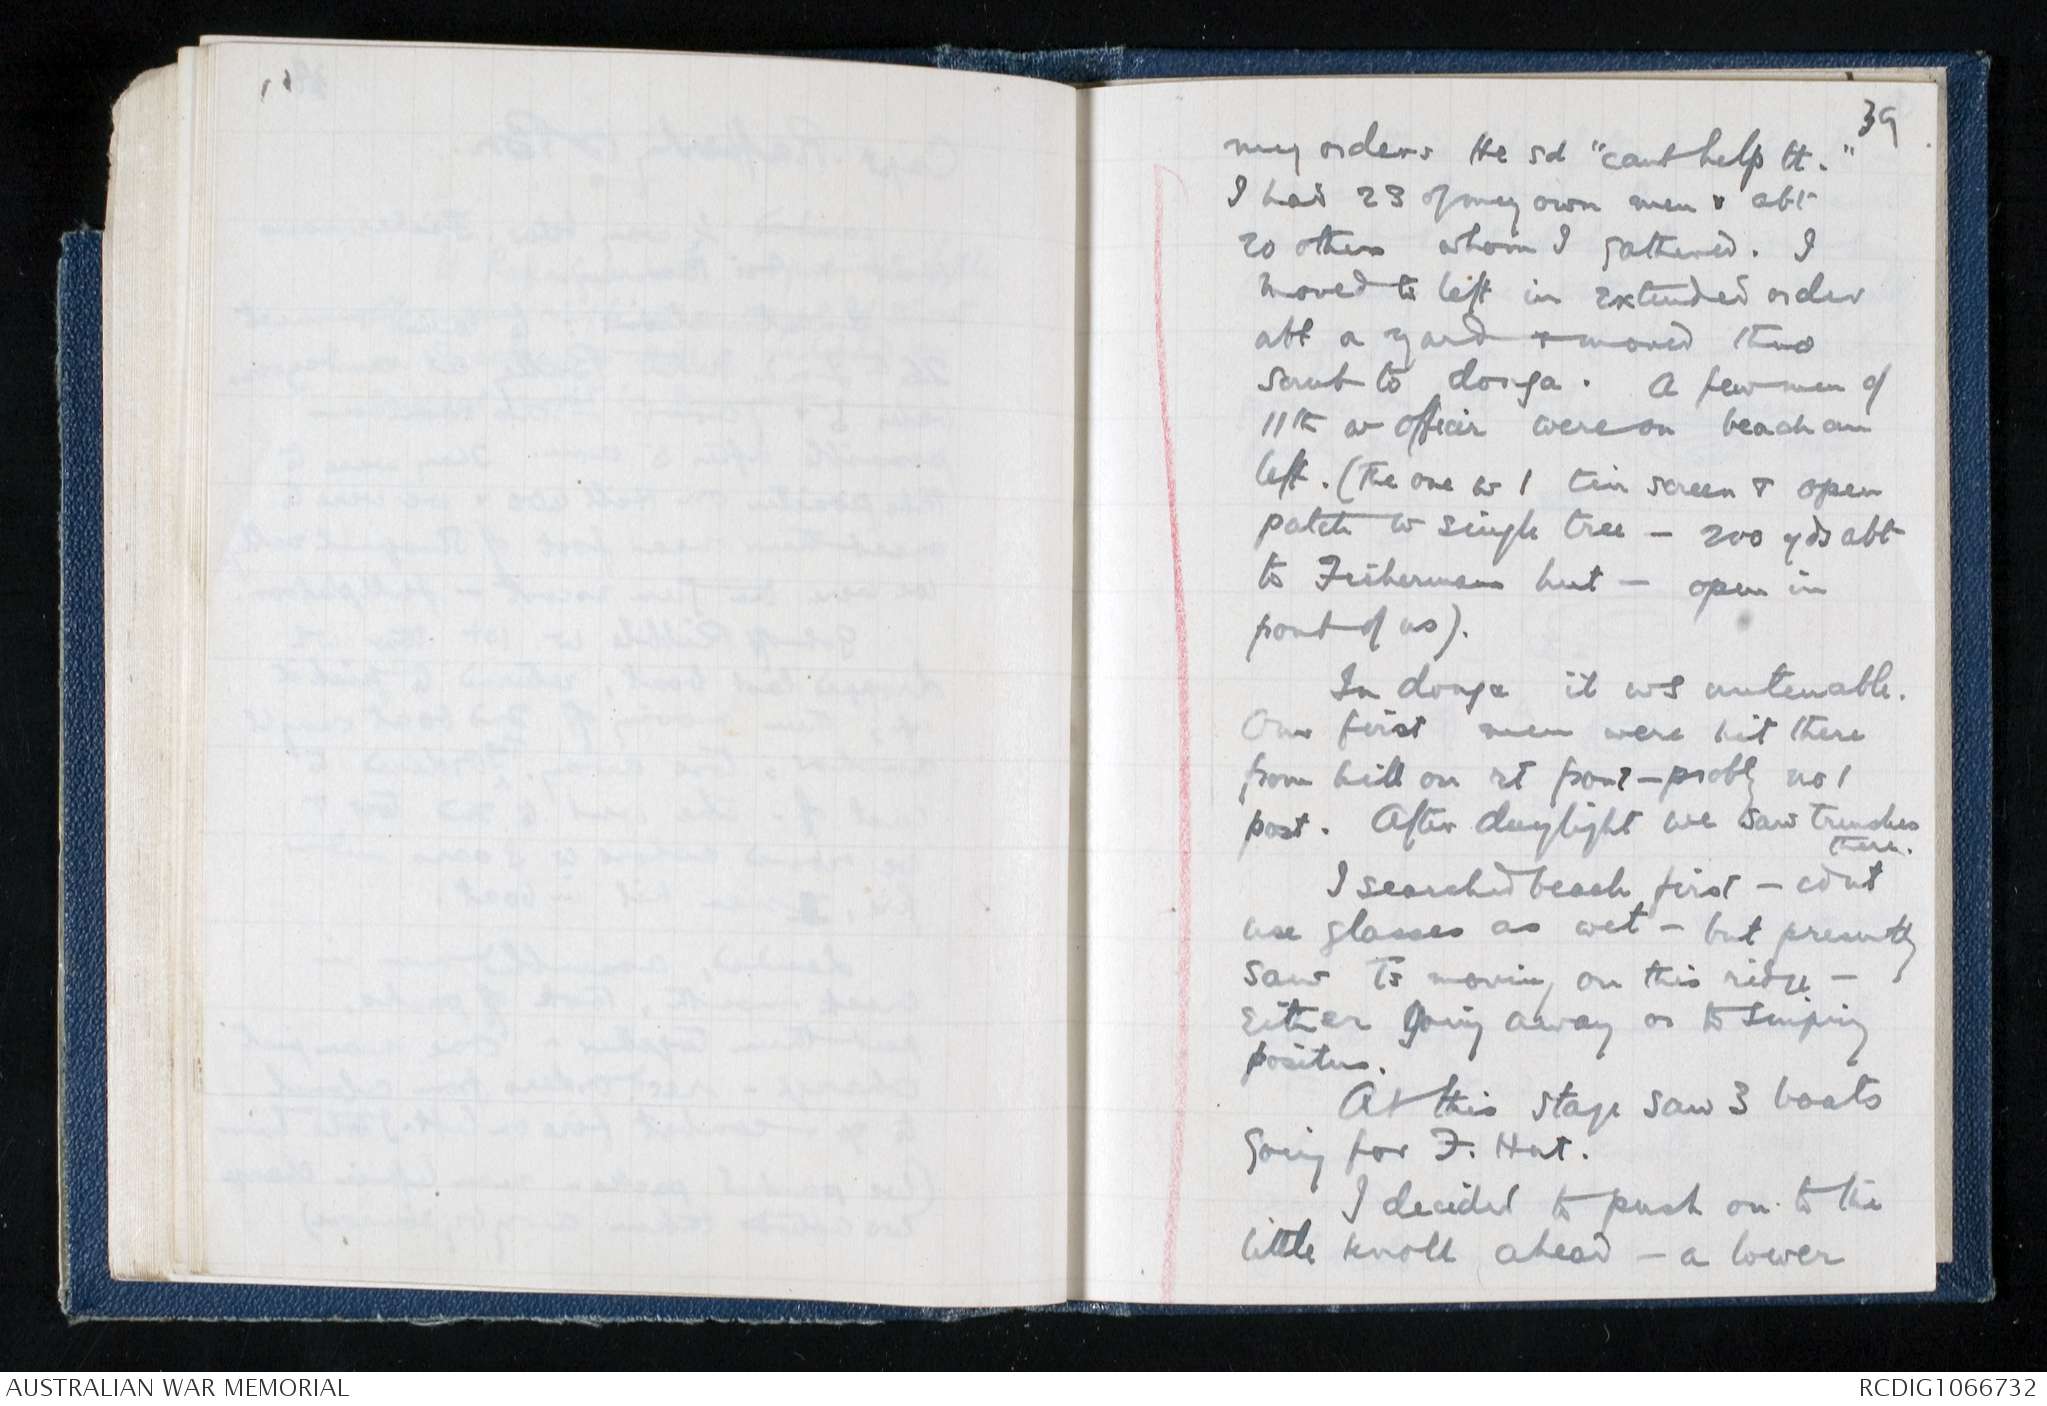 39
my orders He sd "cant help tt."
I had 23 of my own men & abt
20 others whom I gathered. I
moved to left in extended order
abt a yard & moved thro
scrub to donga. A few men of
11th w officer were on beach on
left. (The one w 1 tin screen & open
patch w single tree - 200 yds abt
to Fishermans hut - open in
front of us).
In donga it ws untenable.
Our first men were hit there
from hill on rt front - probly no 1
post. After daylight we saw trenches
there.
I searched beach first - cdnt
use glasses as wet - but presently
saw Ts moving on this ridge -
either going away or to sniping
positns.
At this stage saw 3 boats
going for F. Hut.
I decided to push on to the
little knoll ahead - a lower
AUSTRALIAN WAR MEMORIAL
RCDIG1066732